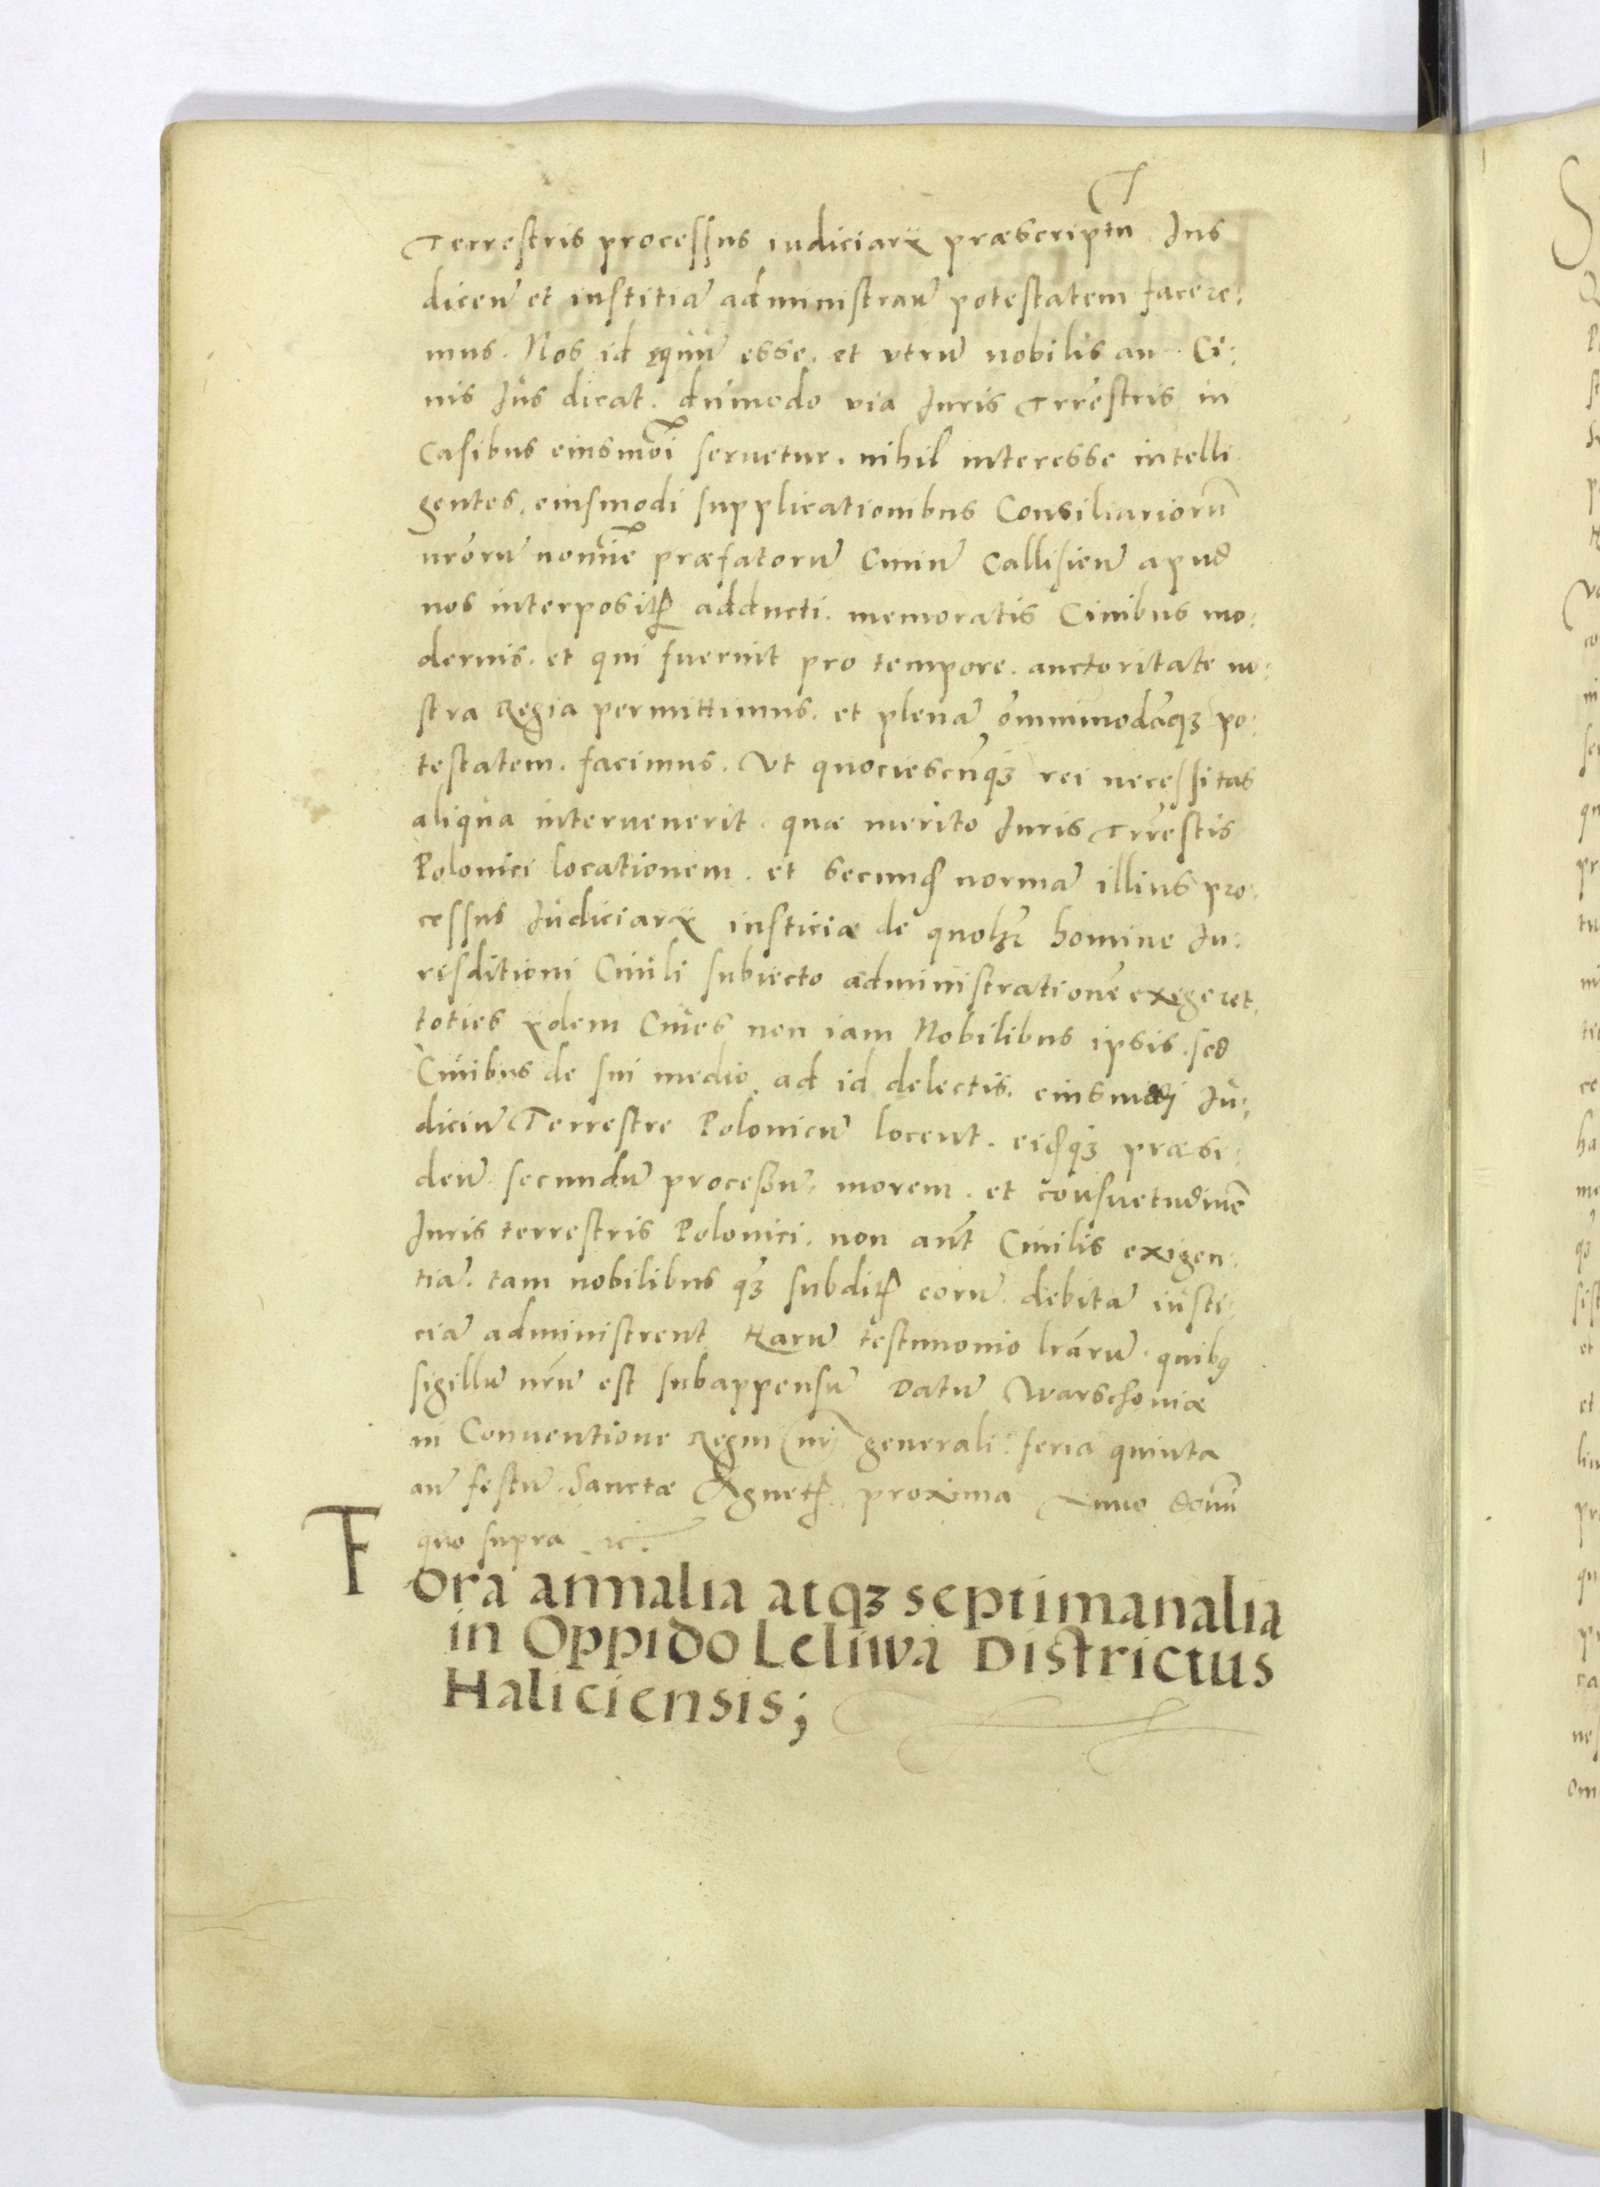 Terrestris processus iudiciarii præscriptũ Ius
dicen̄ et iustitiā administran̄ potestatem facere:
mus. Nos id equũ esse, et vtrũ nobilis an Ci:
uis Jus dicat. dũmodo via Juris Trrestris in
Casibus eiusmõi seruetur. nihil interesse intelli
gentes, eiusmodi supplicationibus Consiliariorũ
nrorũ nomĩe præfatorũ Ciuiũ Callisien̄ apud
nos interposit̃ adducti. memoratis Ciuibus mo:
dernis. et qui fuerint pro tempore. auctoritate no:
stra Regia permittimus. et plenā omnimodāq̃ȝ po:
testatem. facimus. Vt quociescũq̃ȝ rei necessitas
aliqua interuenerit. quæ merito Juris Trrestis
Polonici locationem. et secund̃ normā illius pro:
cessus Judiciarii iusticiæ de quol̃ȝ homine Ju:
risditioni Ciuili subiecto administrationē exigeret,
toties iidem Ciues non iam Nobilibus ipsis. sed
Ciuibus de sui medio ad id delectis. eiusmõi Ju:
diciũ Terrestre Polonicũ locent. eid̃q̃ȝ præsi:
den̄ secundũ processum, morem. et consuetudinē
Juris terrestris Polonici. non aut̃ Ciuilis exigen:
tiā. tam nobilibus q̃ȝ subdit̃ eorũ debitā iusti:
ciā administrent Harũ testimonio lrārũ. quibꝰ
sigillũ nrũ est subappensũ Datũ Warschouiæ
in Conuentione Regni (nri) generali: feria quinta
an̄ festũ Sanctæ Agnet̃ proxima Anno dominĩ
quo supra ⁊c.
Fora annalia atqȝ septimanalia
in Oppido Leliwa Districtus
Haliciensis;